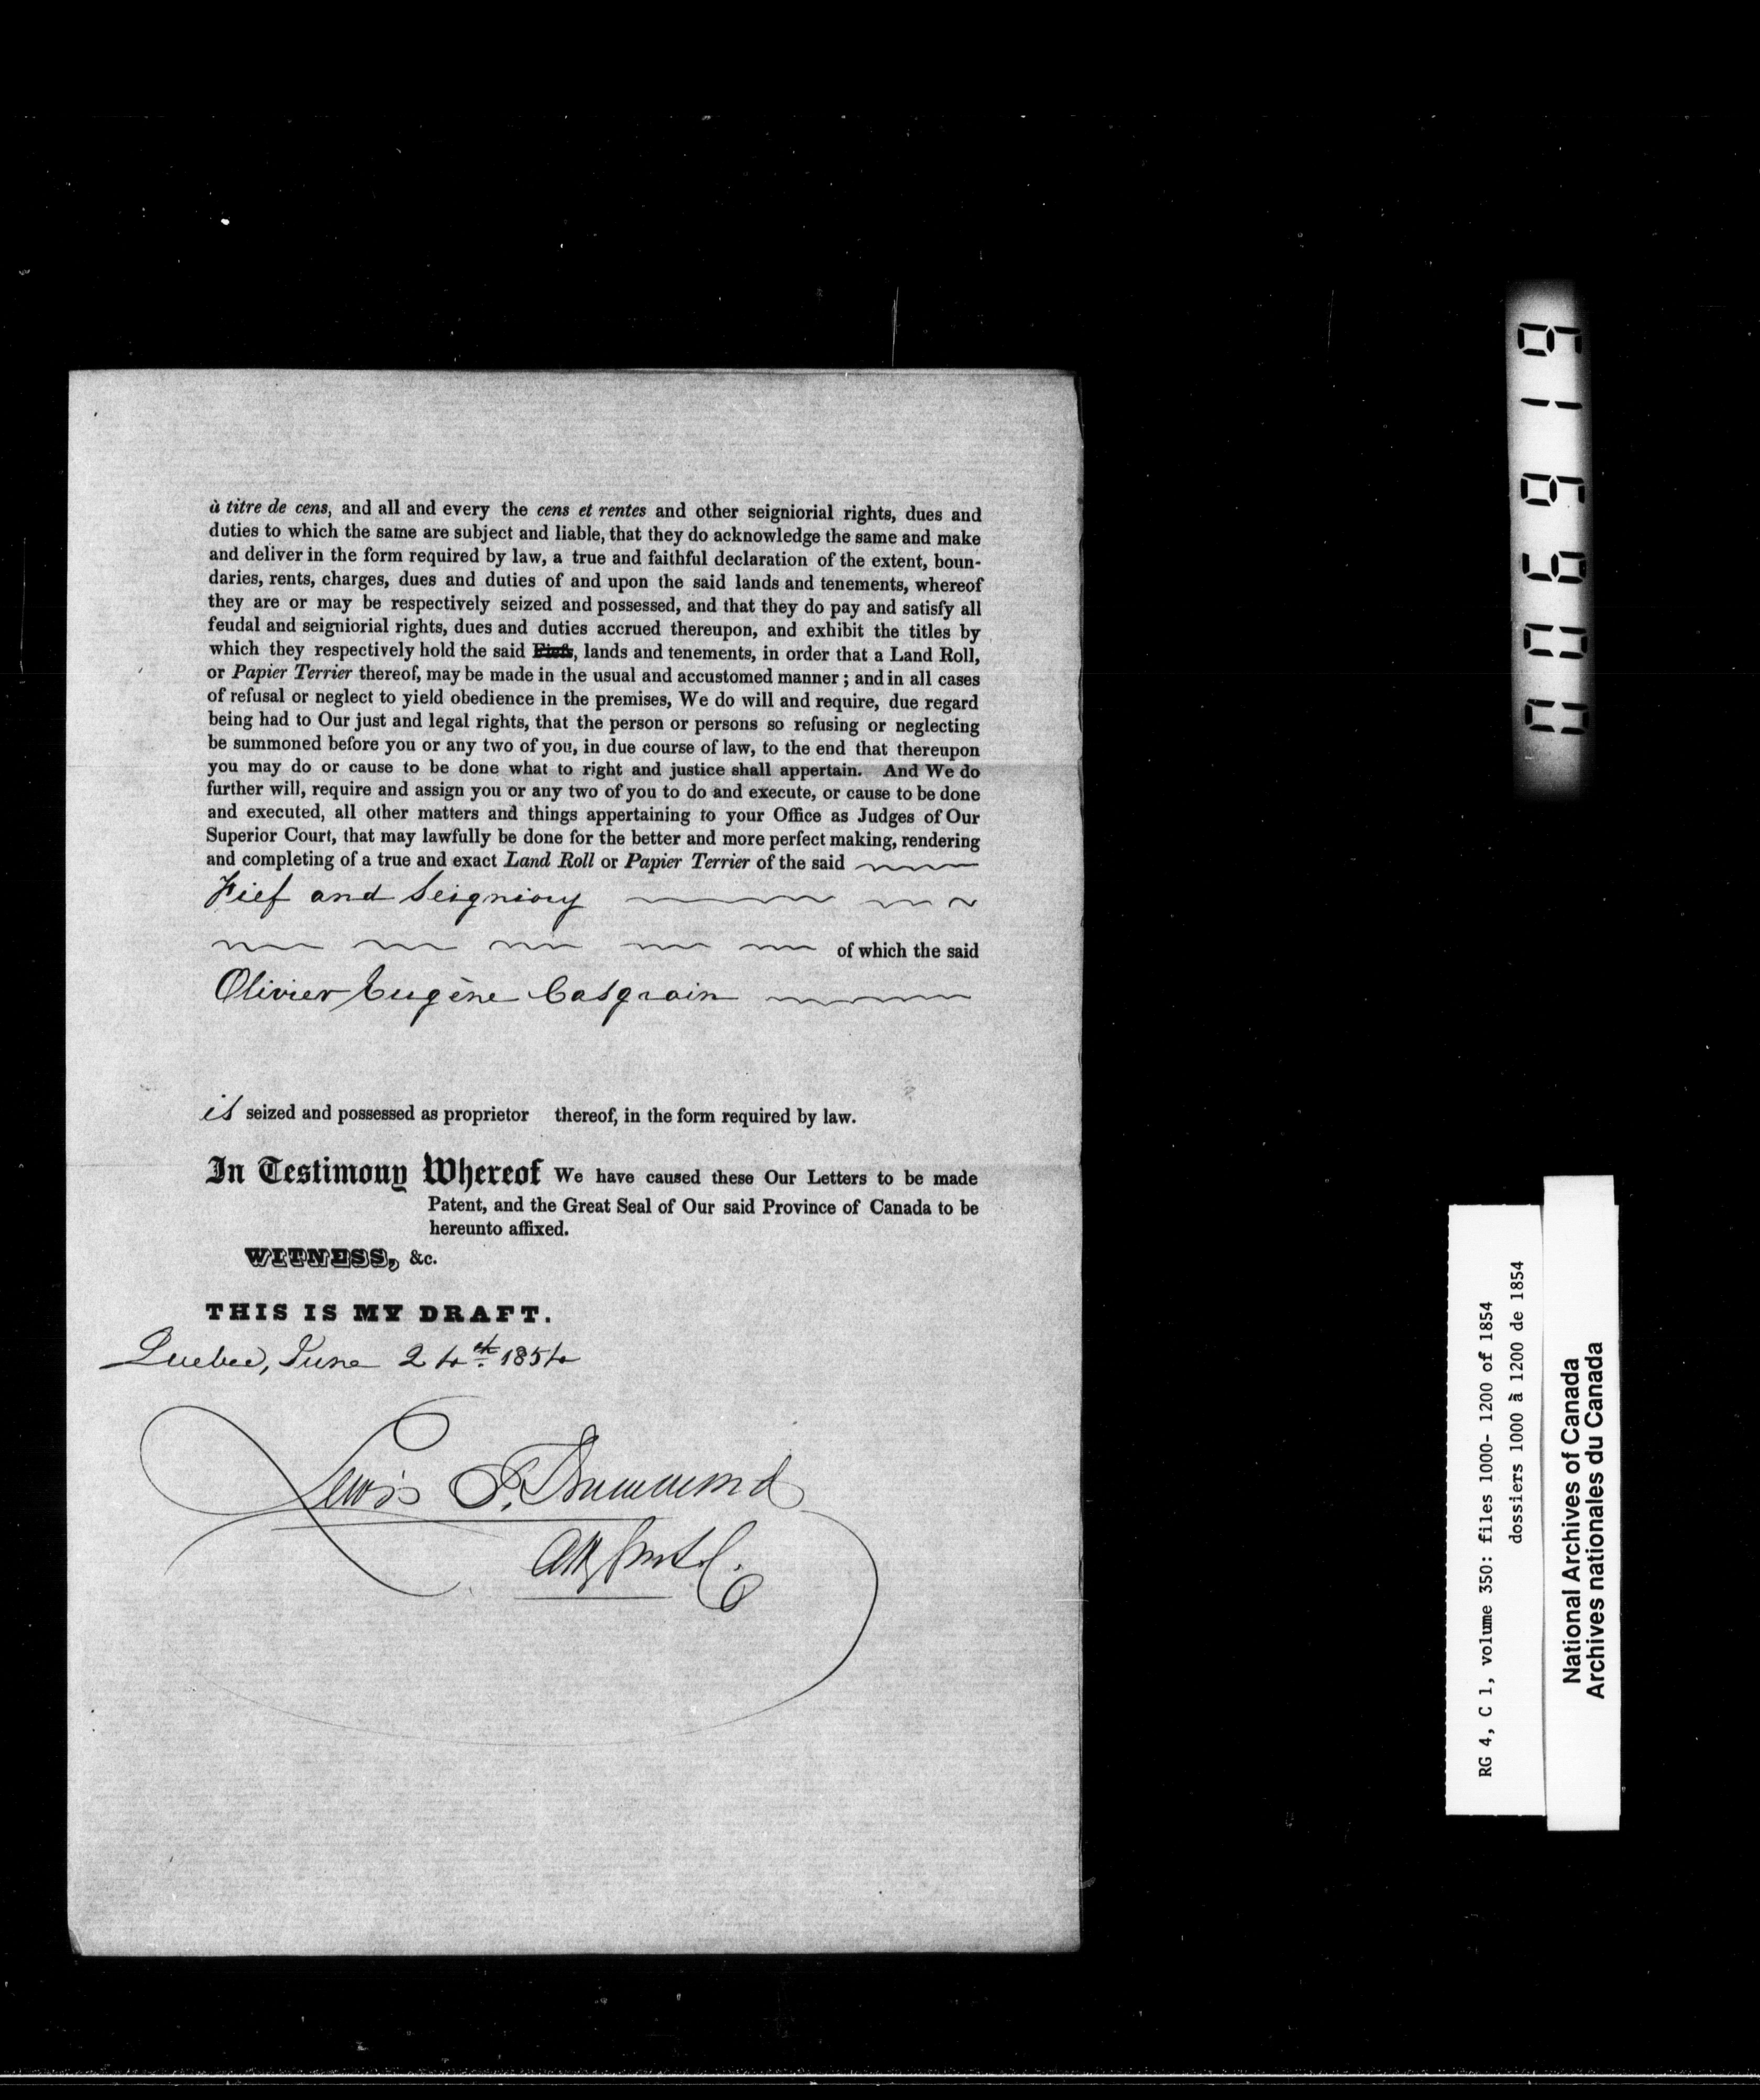 à titre de cens, and all and every the cens et rentes and other seigniorial rights, dues and
duties to which the same are subject and liable, that they do acknowledge the same and make
and deliver in the form required by law, a true and faithful declaration of the extent, boun-
daries, rents, charges, dues and duties of and upon the said lands and tenements, whereof
they are or may be respectively seized and possessed, and that they do pay and satisfy all
feudal and seigniorial rights, dues and duties accrued thereupon, and exhibit the titles by
which they respectively hold the said Fiefs, lands and tenements, in order that a Land Roll,
or Papier Terrier thereof, may be made in the usual and accustomed manner; and in all cases
of refusal or neglect to yield obedience in the premises, We do will and require, due regard
being had to Our just and legal rights, that the person or persons so refusing or neglecting
be summoned before you or any two of you, in due course of law, to the end that thereupon
you may do or cause to be done what to right and justice shall appertain. And We do
further will, require and assign you or any two of you to do and execute, or cause to be done
and executed, all other matters and things appertaining to your Office as Judges of Our
Superior Court, that may lawfully be done for the better and more perfect making, rendering
and completing of a true and exact Land Roll or Papier Terrier of the said
Fief and Seigniory
of which the said
Olivier Eugène Casgrain
is seized and possessed as proprietor thereof, in the form required by law.
In Testimony Whereof We have caused these Our Letters to be made
Patent, and the Great Seal of Our said Province of Canada to be
hereunto affixed.
WITNESS, &c.
THIS IS MY DRAFT.
Quebec, June 24th 1854
Lewis T. Drummond
RG 4, C 1, volume 350: files 1000- 1200 of 1854
dossiers 1000 à 1200 de 1854
National Archives of Canada
Archives nationales du Canada